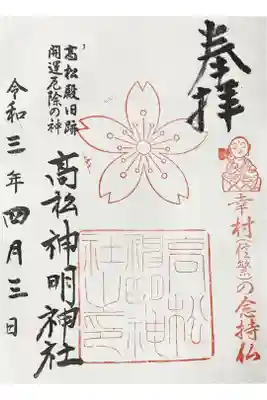 奉拝
幸村(信繁)の念持仏
高松殿旧跡
開運厄除の神
高松神明神社
令和三年四月三日